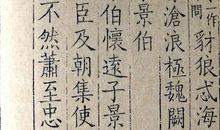 豺狼忒海
滄浪極魏闕
景伯
伯懷遠子景
臣及朝集使
不然蕭至忠